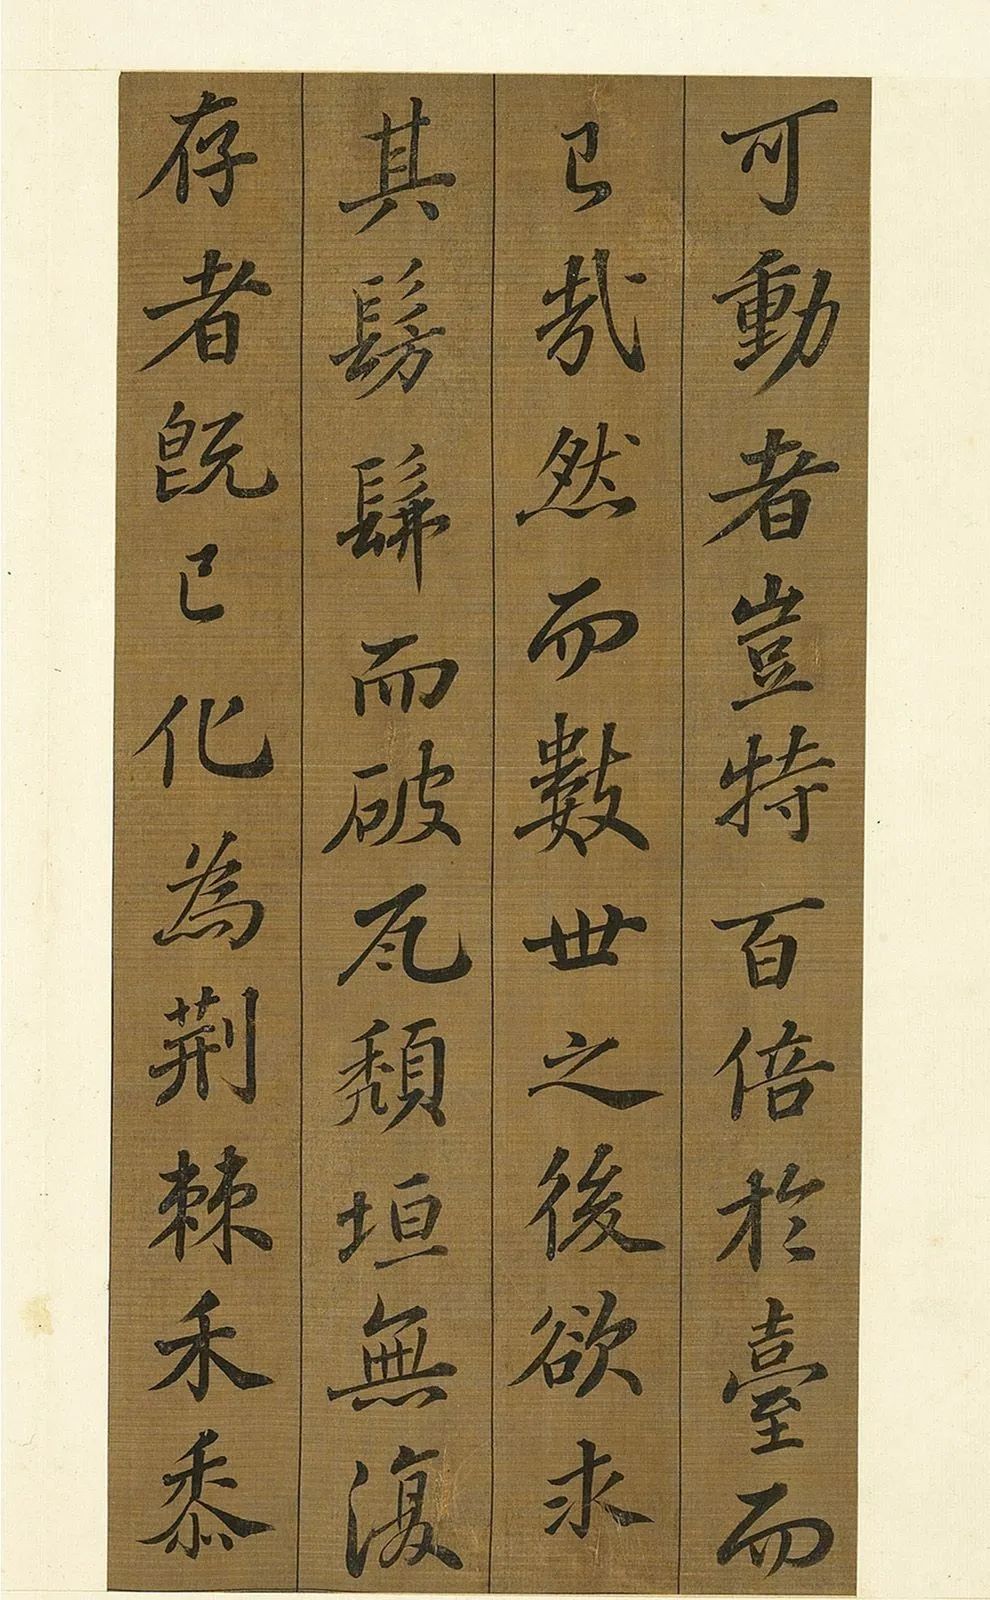 可動者豈特百倍於臺而
已哉然而數世之後欲求
其髣髴而破瓦頹垣無復
存者既已化為荆棘禾黍